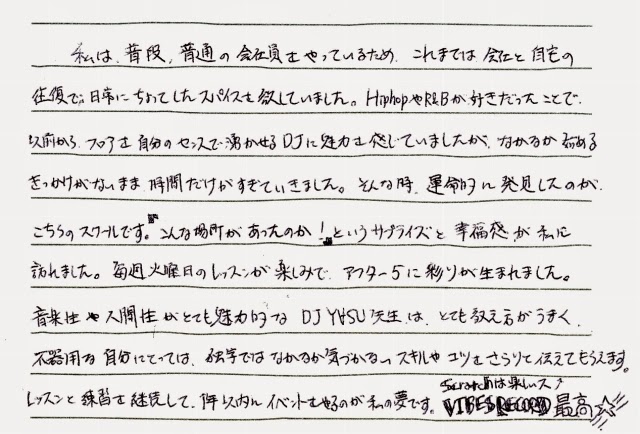 私は、普段、普通の会社員をやっているため、これまでは会社と自宅の
往復で、日常にちょっとしたスパイスを欲していました。HiphopやR&Bが好きだったことで、
以前から、フロアを自分のセンスで湧かせるDJに魅力を感じていましたが、なかなか始める
きっかけがないまま時間だけがすぎていきました。そんな時、運命的に発見したのが、
こちらのスクールです。こんな場所があったのか!というサプライズと幸福感が私に
訪れました。毎週火曜日のレッスンが楽しみで、アフター5に彩りが生まれました。
音楽性や人間性がとても魅力的なDJ YASU先生は、とても教え方がうまく、
不器用な自分にとっては、独学ではなかなか気づかないスキルやコツをさらりと伝えてもらえます。
Scratchは楽しいス♪
レッスンと練習を継続して、1年以内にイベントをやるのが私の夢です。VIBESRECORD最高☆